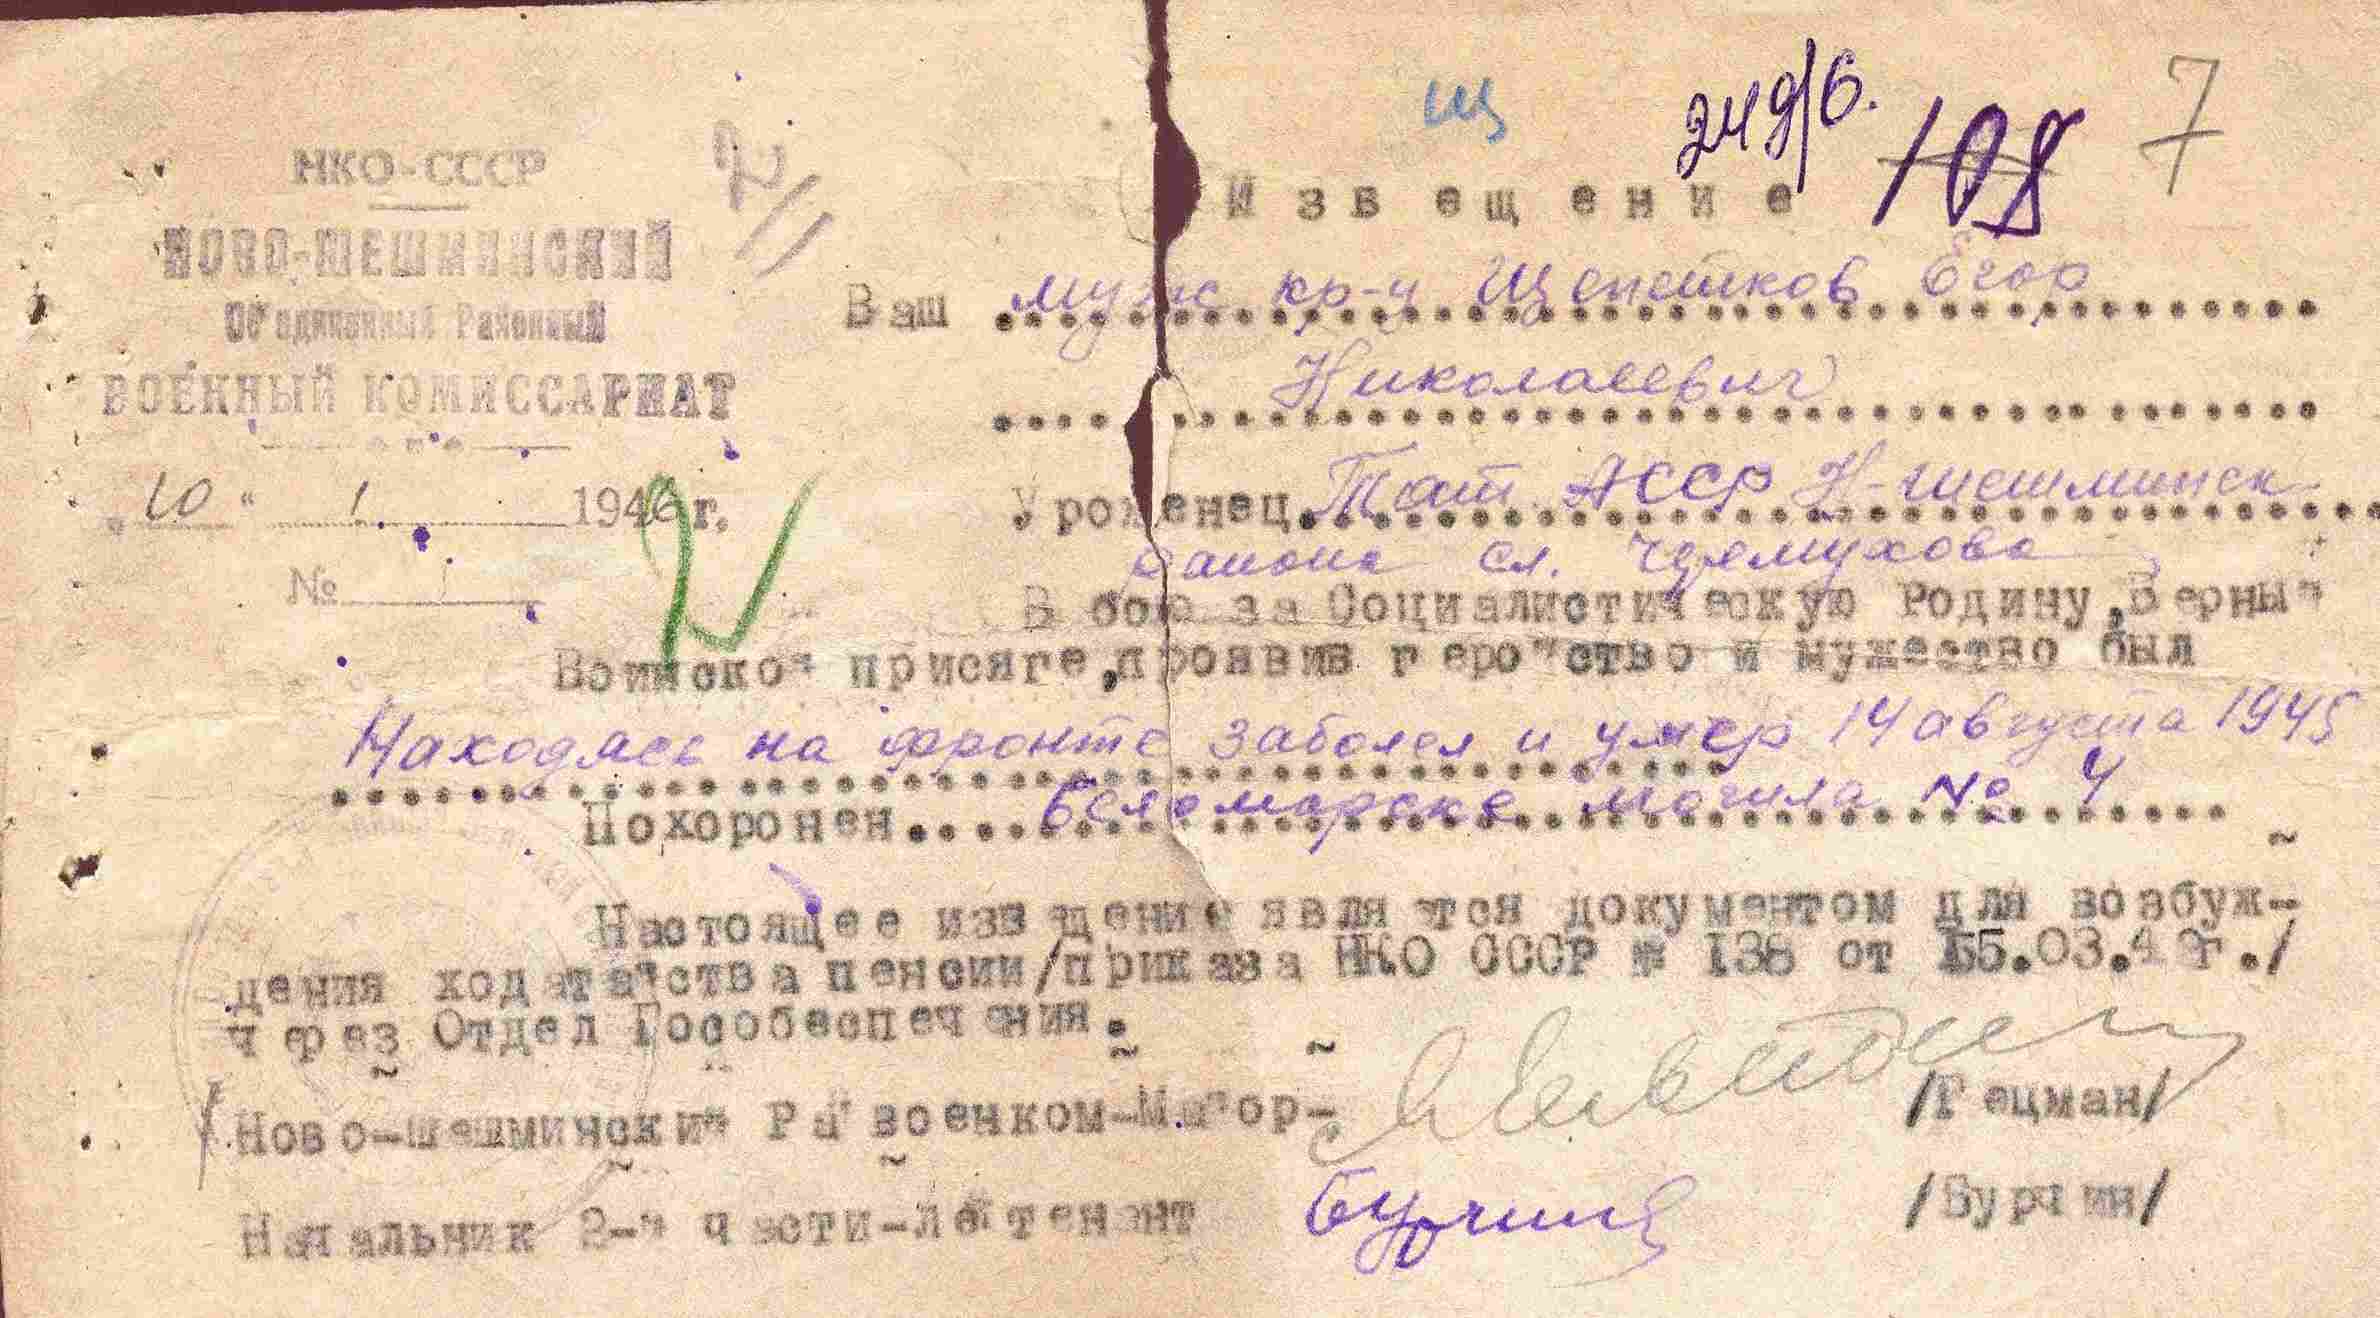 щ
249/6.
108
7
НКО-СССР
НОВО-ШЕШМИНСКИЙ
Об'единенный Районный
ВОЕННЫЙ КОМИССАРИАТ
„10“ 1. 1946 г.
№
Извещение
Ваш муж кр-ц Щепетков Егор
Николаевич
Уроженец Тат АССР Н-шешминск
района сл. Черемухово
В бою за Социалистическую Родину, Верный
Воинской присяге, проявив геройство и мужество был
Находясь на фронте заболел и умер 14 августа 1945
Похоронен Беломорске могила № 4
Настоящее извещение является документом для возбуж-
дения ходатайства пенсии/приказа НКО СССР № 138 от 15.03.40г./
через Отдел Гособеспечения.
Ново-шешминский Райвоенком-Майор- /Гецман/
Начальник 2-й части-лейтенант Бурчин /Бурчин/